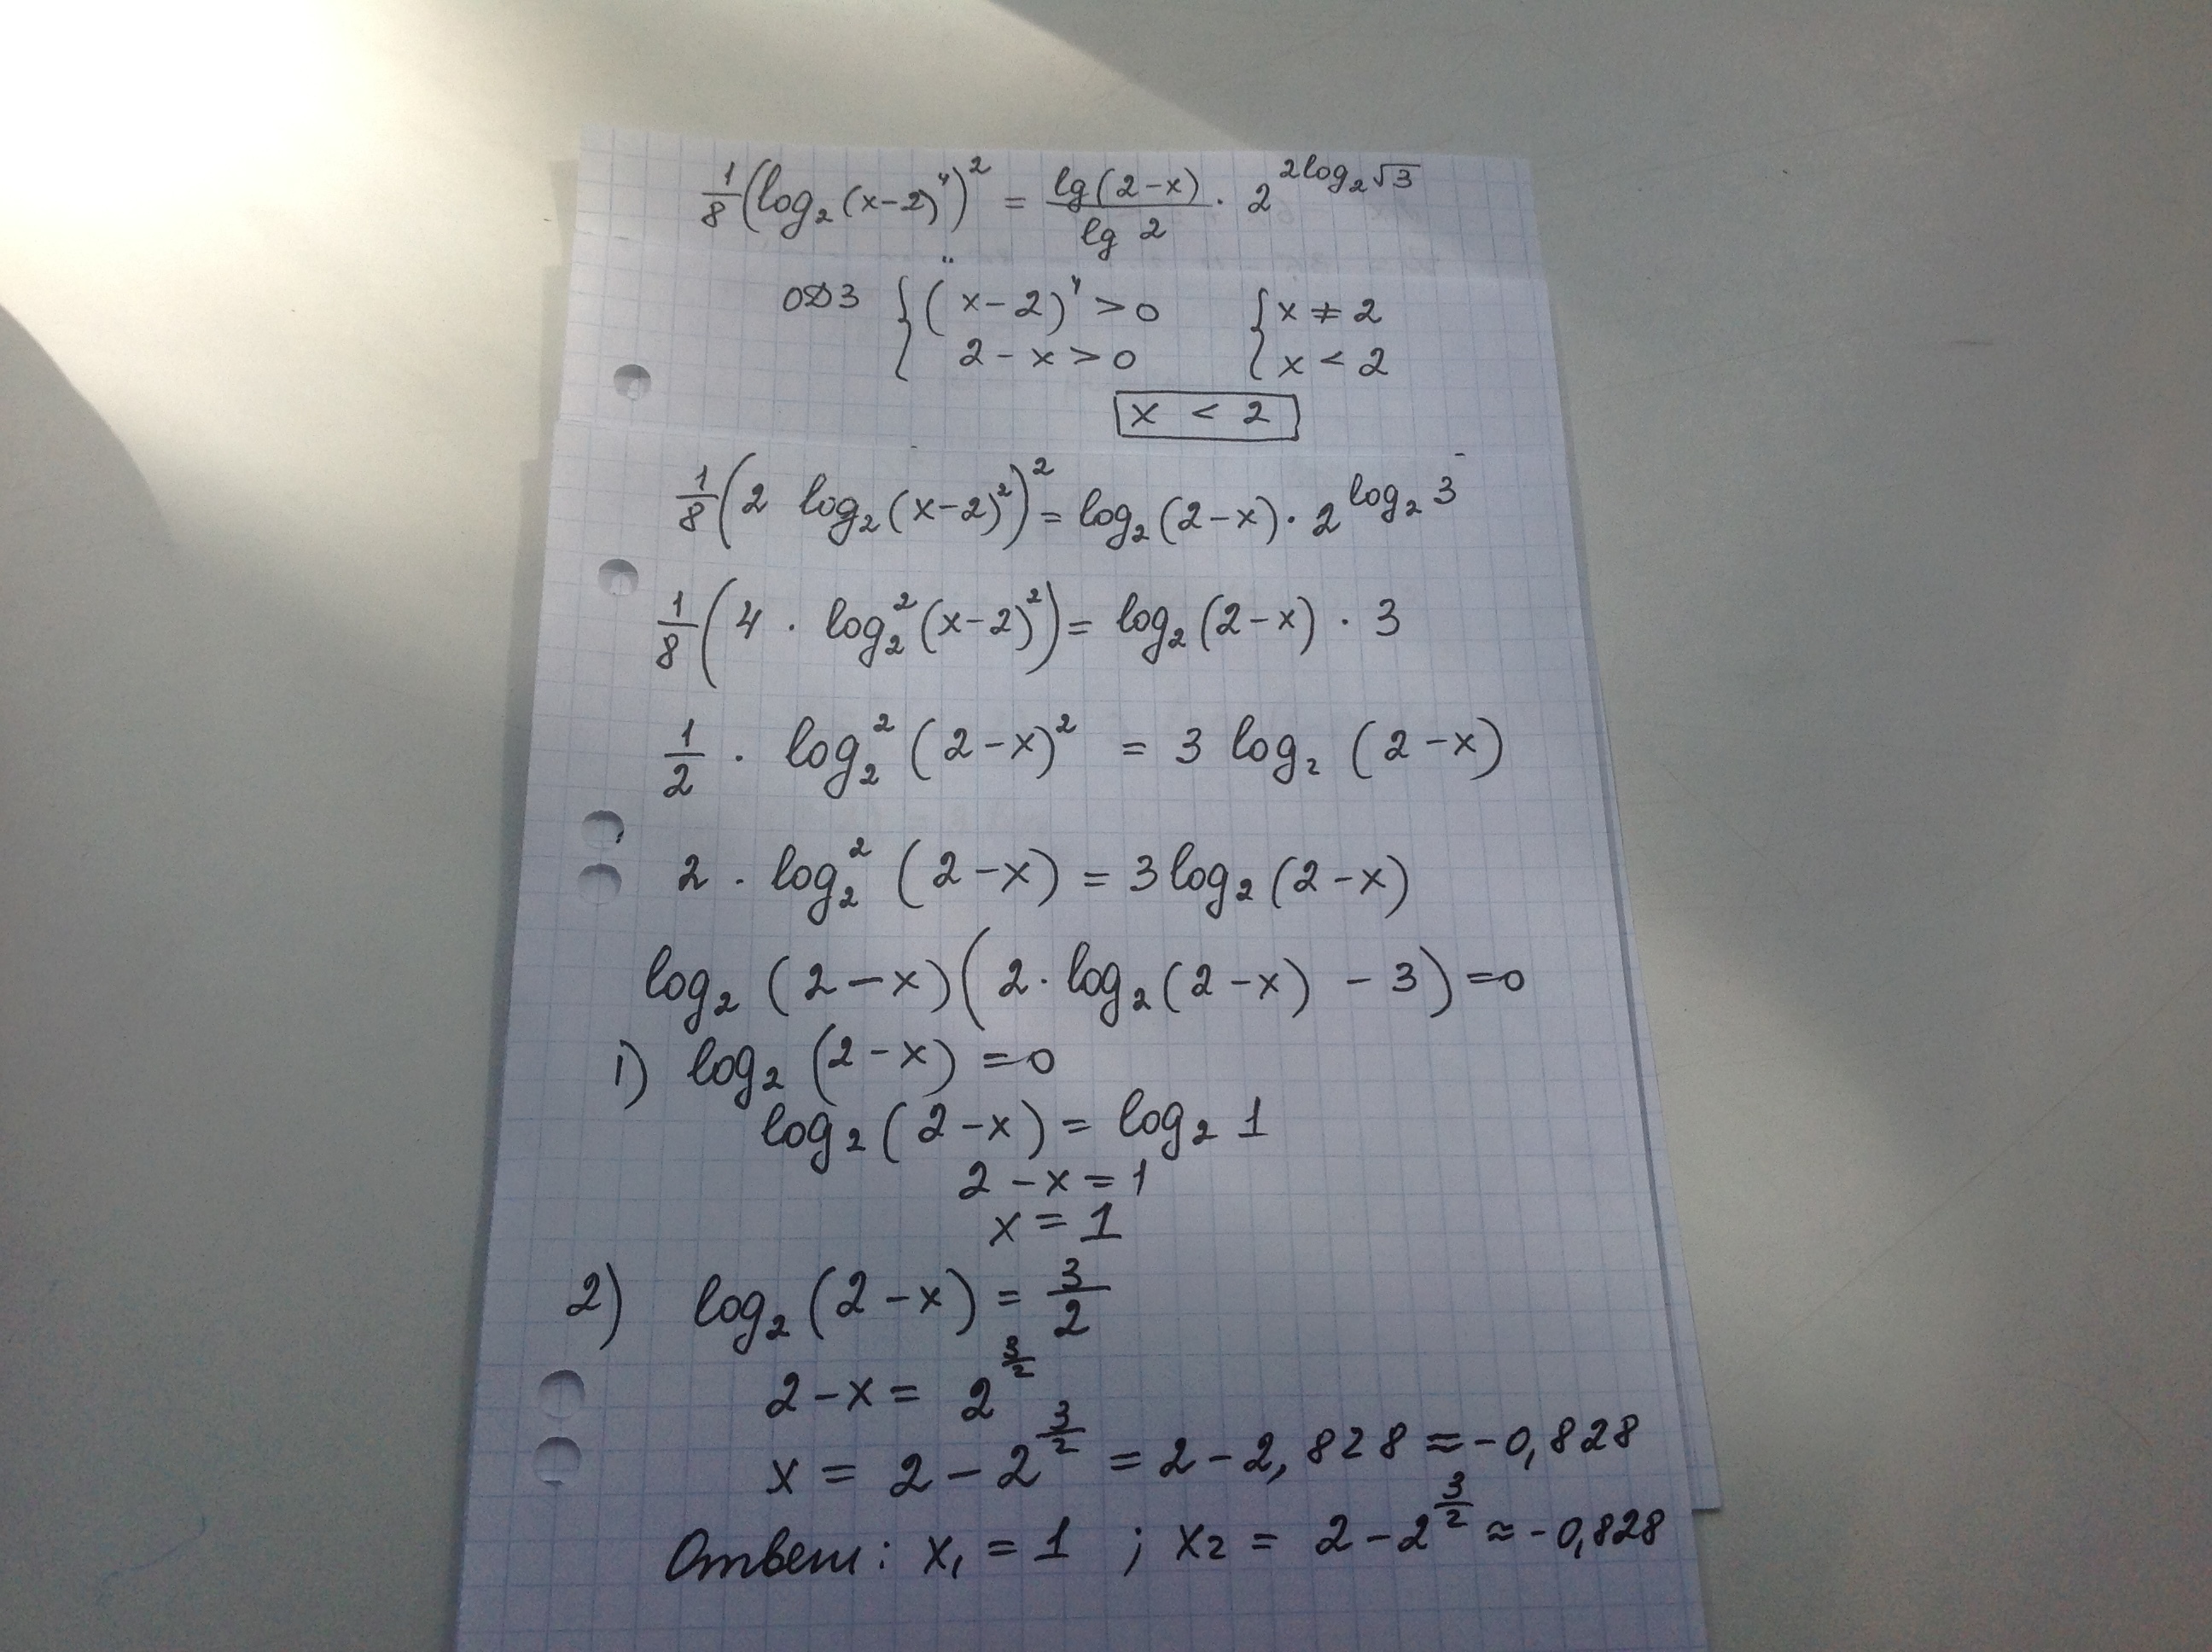 1/8 (log₂(x-2)⁴)² = lg(2-x)/lg 2 · 2^(2log₂√3)
ОДЗ { (x-2)⁴ > 0 { x ≠ 2
2 - x > 0 x < 2
x < 2
1/8 (2 log₂(x-2)²)² = log₂(2-x) · 2^(log₂3)
1/8 (4 · log₂²(x-2)²) = log₂(2-x) · 3
1/2 · log₂²(2-x)² = 3 log₂(2-x)
2 · log₂²(2-x) = 3log₂(2-x)
log₂(2-x)(2·log₂(2-x) - 3) = 0
1) log₂(2-x) = 0
log₂(2-x) = log₂1
2 - x = 1
x = 1
2) log₂(2-x) = 3/2
2-x = 2^(3/2)
x = 2 - 2^(3/2) = 2 - 2,828 ≈ -0,828
Ответ: x₁ = 1 ; x₂ = 2 - 2^(3/2) ≈ -0,828